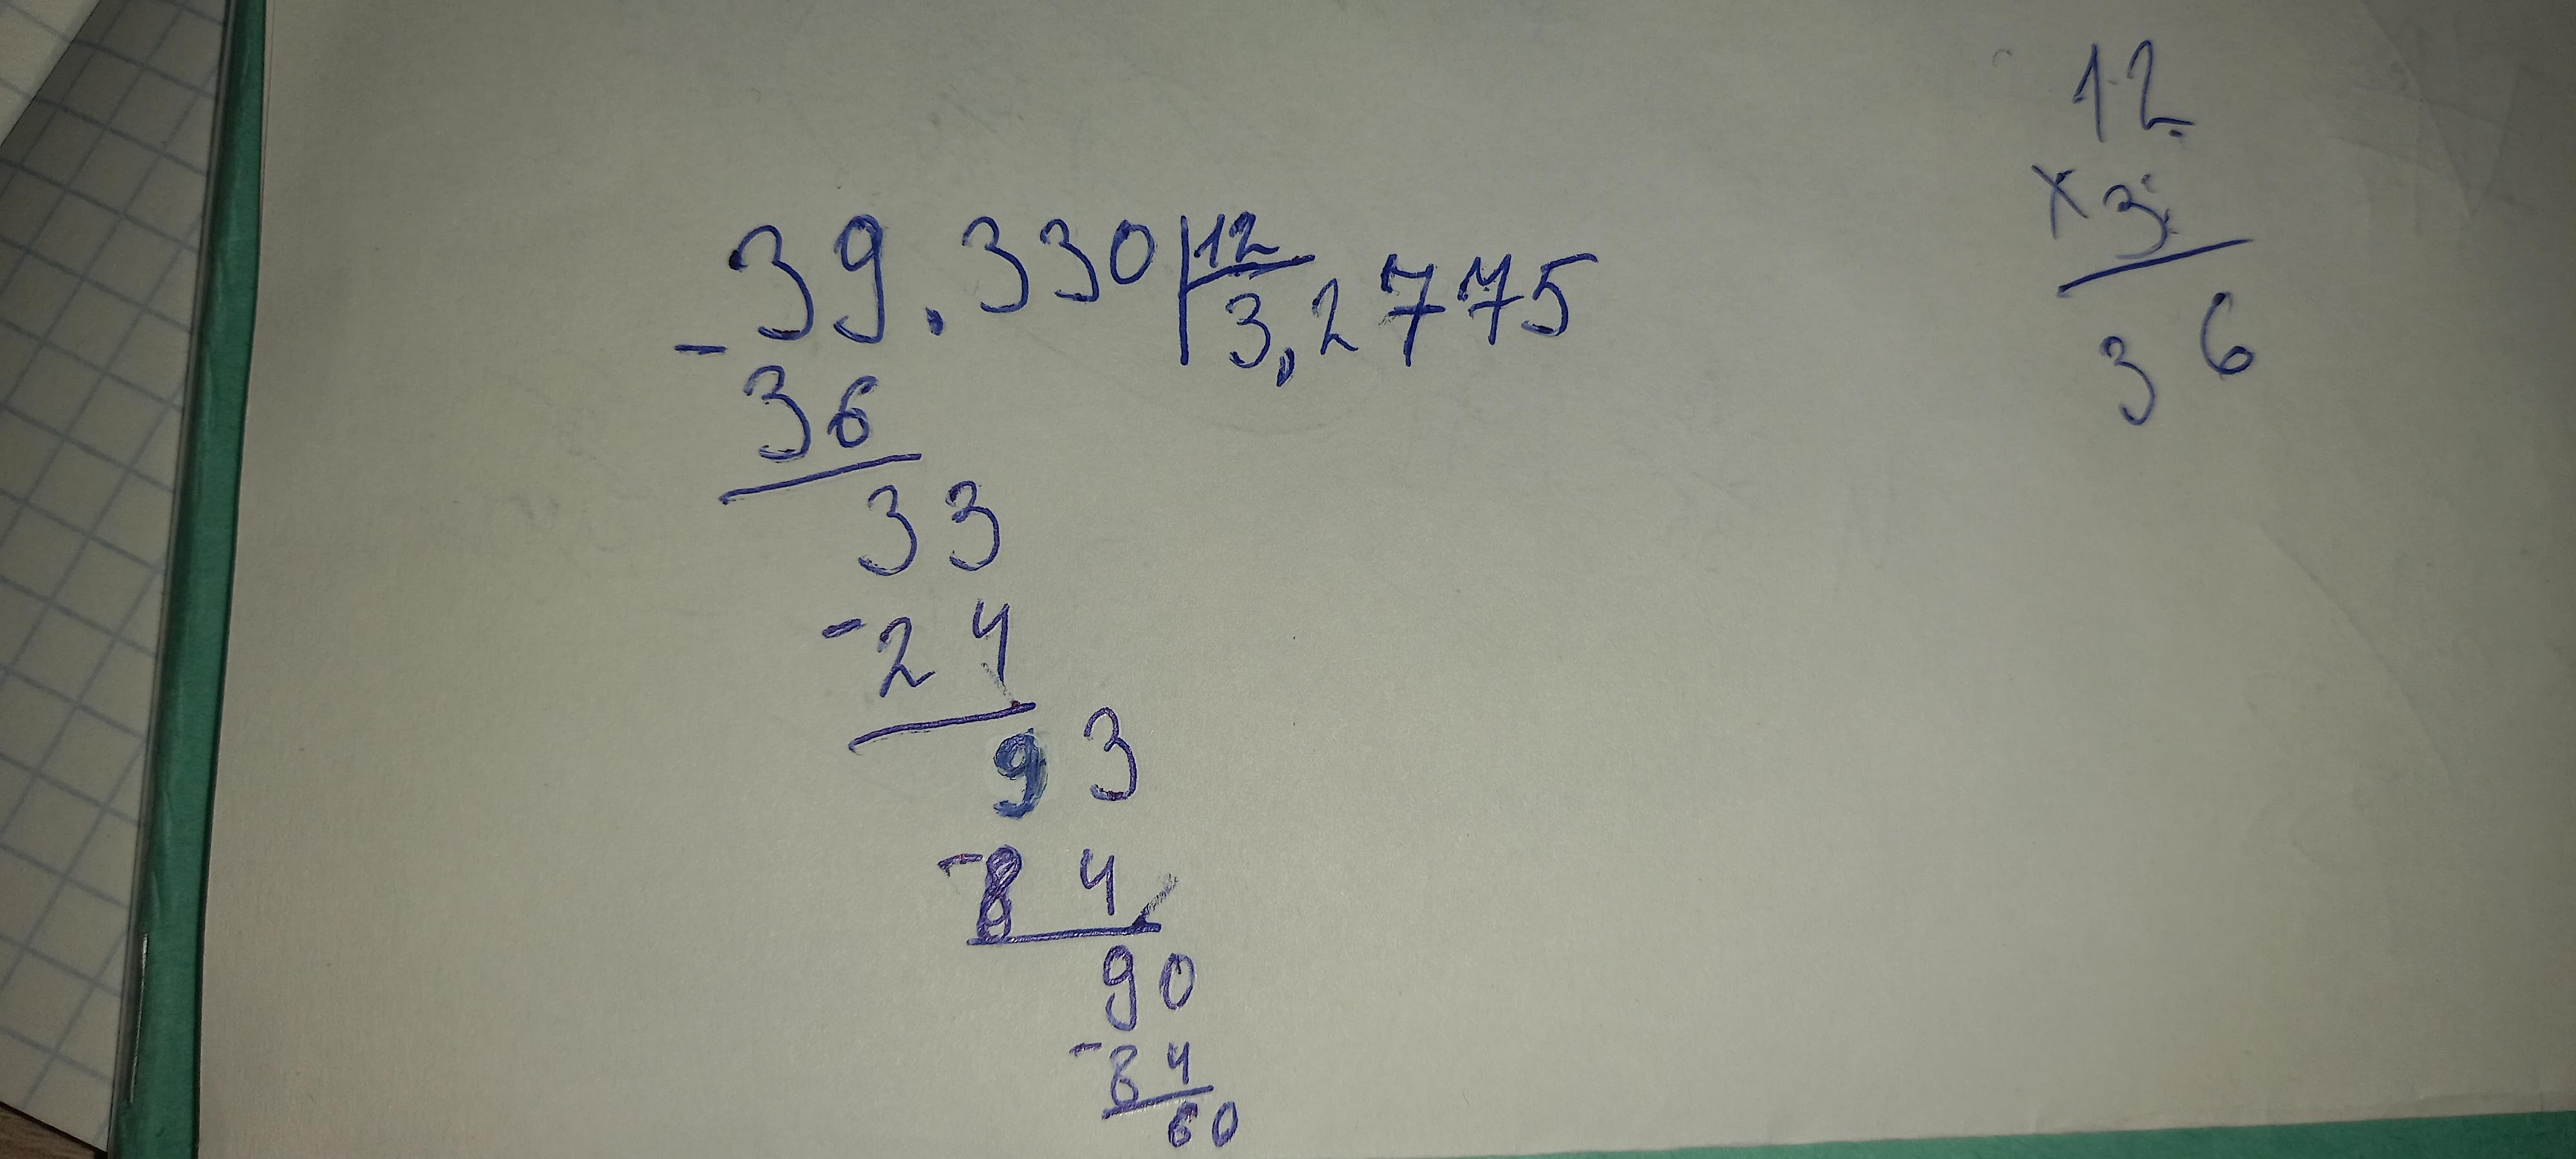 39.330 12
3,2775
- 36
33
- 24
93
- 84
90
- 84
60
12
x 3
36